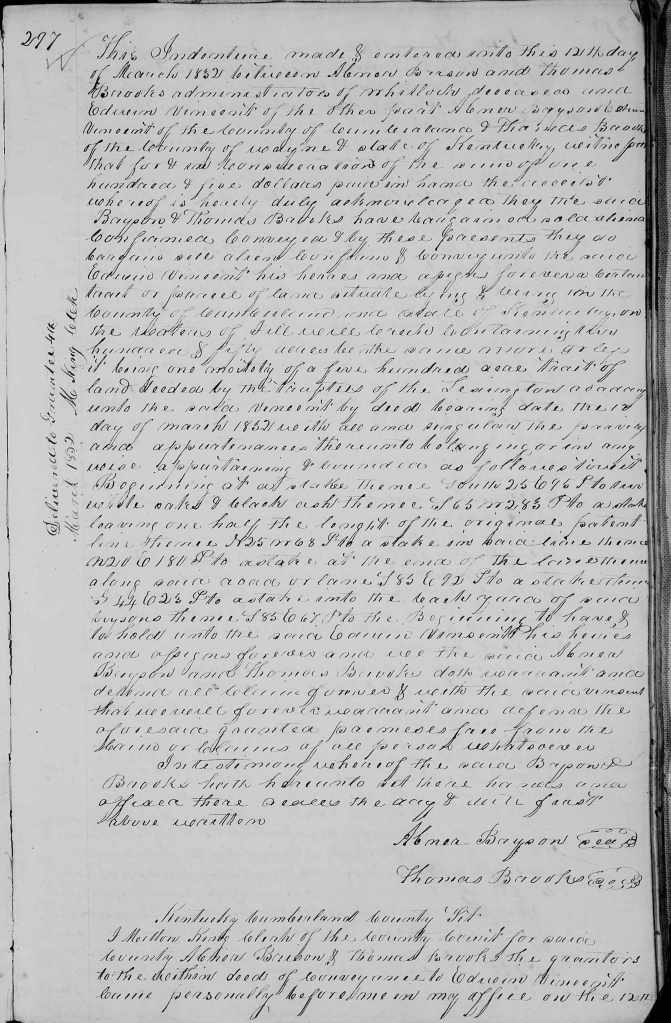 297
This Indenture made & entered into this 12th day
of March 1852 between Abner Bryson and Thomas
Brooks administrators of Whitlock deceased and
Edwin Vincent of the other part Abner Bryson Edwin
Vincent of the County of Cumberland & Thomas Brooks
of the County of Wayne & State of Kentucky
that for & in Consideration of the sum of one
hundred & five dollars paid in hand the receipt
whereof is hereby duly acknowledged they the said
Bryson & Thomas Brooks have bargained sold
Confirmed Conveyed & by these presents they do
bargain sell alien Confirm & Convey unto the said
Edwin Vincent his heires and assigns forever a Certain
tract or parcel of land situate lying & being in the
County of Cumberland and State of Kentucky on
the waters of Creek Containing two
hundred & fifty acres be the same more or less
it being one moietiy of a five hundred acre trait of
land deeded by the trustees of the academy
unto the said Vincent by deed bearing date the 12
day of march 1852 with all and singular the
and appurtenances thereunto belonging or in any
wise appurtaining & bounded as follows towit
Beginning at a stake thence South 25 E 96 P to two
white oakes & black ash thence S 65 W 283 P to a stake
leaving one half the lenght of the original patent
line thence N 25 W 68 P to a stake in said line thence
N 20 E 180 P to a stake at the end of the lane thence
along said road or lane S 85 E 92 P to a stake thence
S 44 E 23 P to a stake into the back yard of said
brysons thence S 85 E 67 P to the Beginning to have &
to hold unto the said Edwin Vinsent his heires
and assigns forever and we the said Abner
Bryson and Thomas Brooks doth warrant and
defend all Claim forever & with the said vinsent
that we will forever warrant and defend the
aforesaid granted premeses free from the
Claims of all person whatsoever
In testimony whereof the said Bryson &
Brooks hath hereunto set there hands and
affixed there seales the day & first
above written
Abner Bryson seal
Thomas Brooks seal
Kentucky Cumberland County Sct
I Milton King Clerk of the County Court for said
County Abner Bryson & Thomas Brooks the grantors
to the within deed of Conveyance to Edwin Vincent
Came personally before me in my office on the 12th
Delivered to Grantee 4th
March 1852 M King Clk